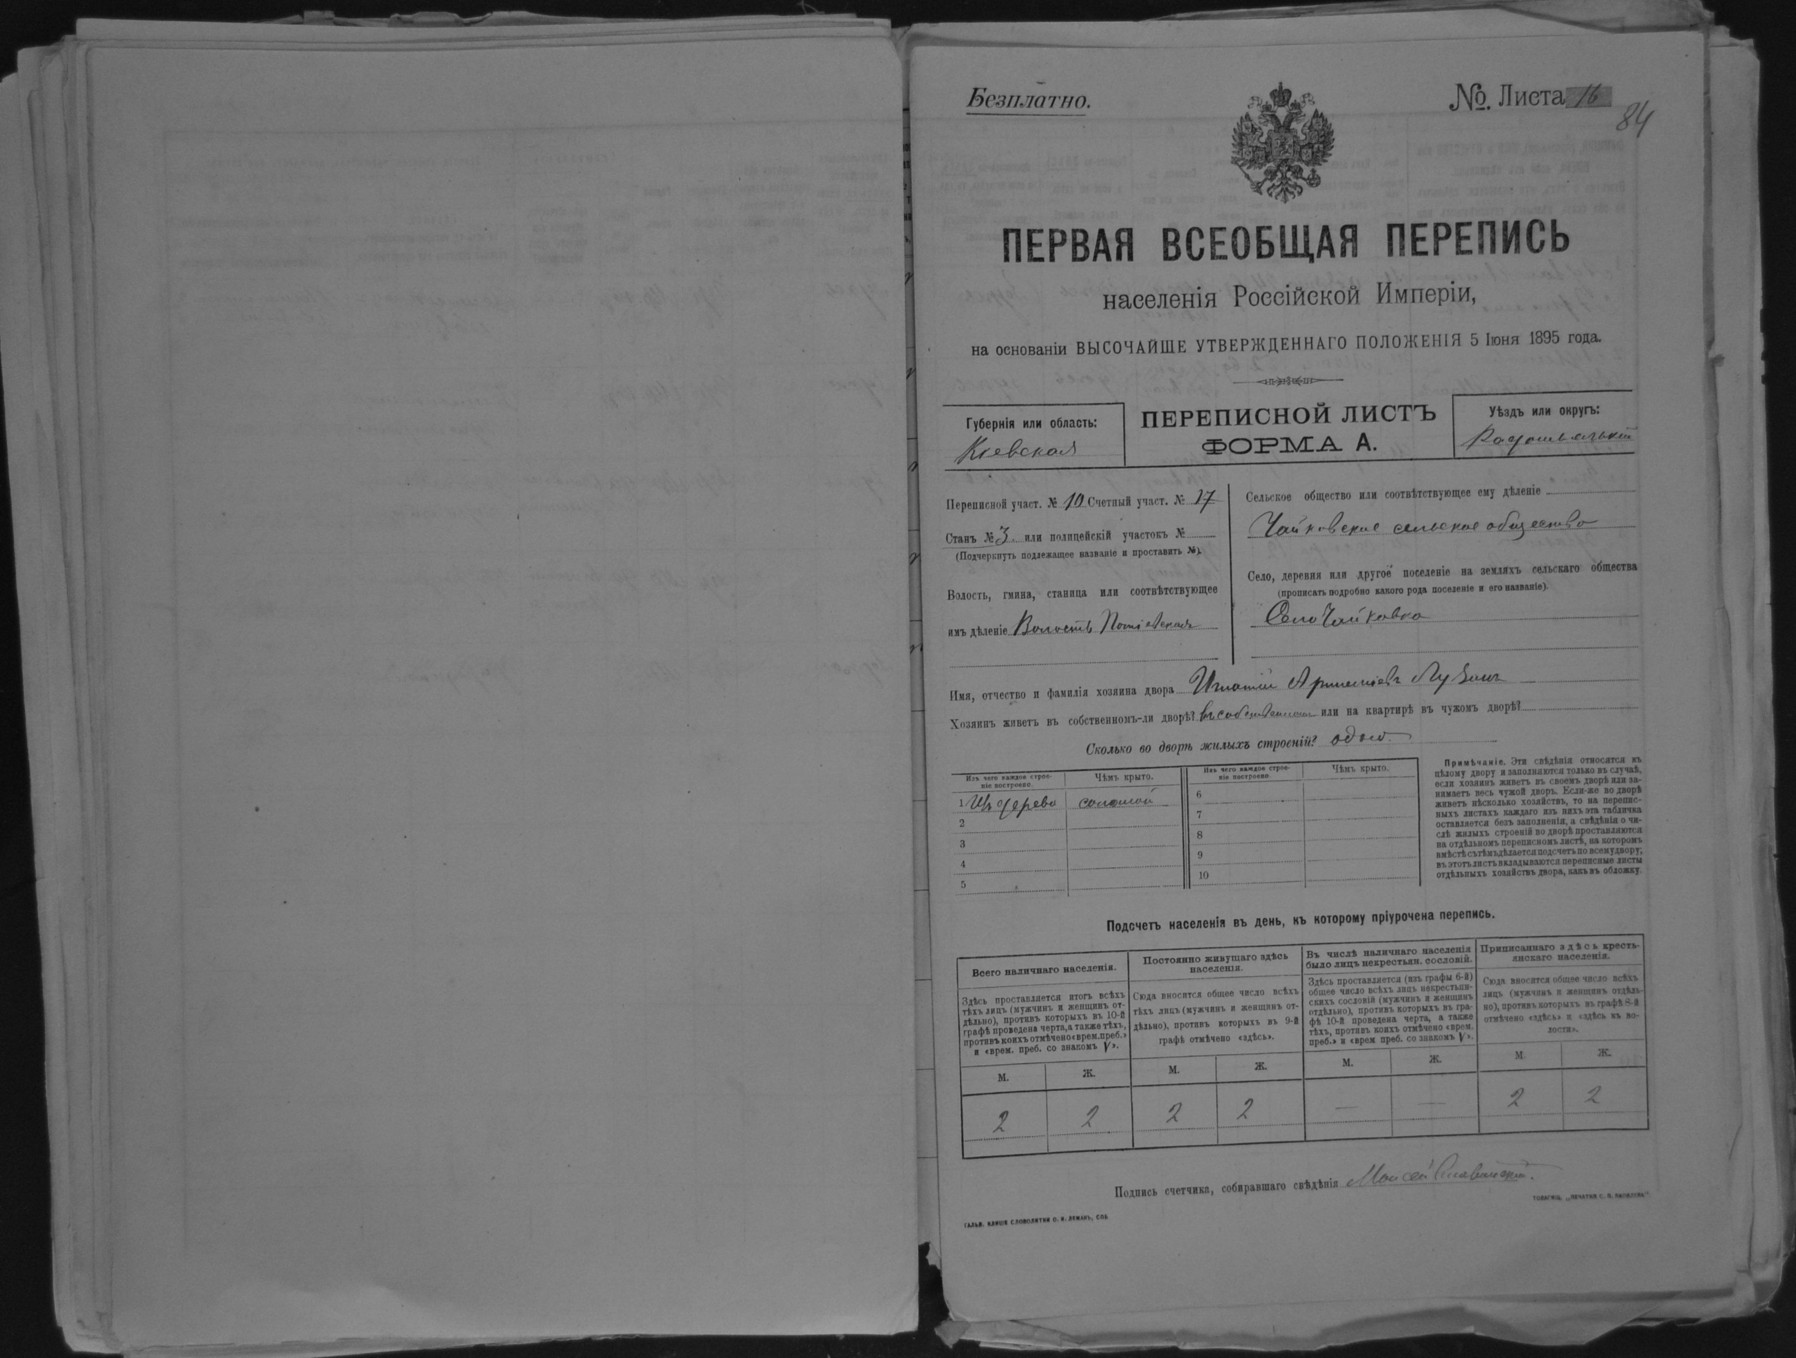 Безплатно.
№ Листа 16
84
ПЕРВАЯ ВСЕОБЩАЯ ПЕРЕПИСЬ
населенія Россійской Имперіи,
на основаніи ВЫСОЧАЙШЕ УТВЕРЖДЕННАГО ПОЛОЖЕНІЯ 5 Іюня 1895 года.
Губернія или область:
Кіевская
ПЕРЕПИСНОЙ ЛИСТЪ
ФОРМА А.
Уѣздъ или округъ:
Радомысльскій
Переписной участ. № 10 Счетный участ. № 17
Станъ № 3 или полицейскій участокъ №
(Подчеркнуть подлежащее названіе и проставить №).
Волость, гмина, станица или соотвѣтствующее
имъ дѣленіе Волость Потіевская
Сельское общество или соотвѣтствующее ему дѣленіе
Чайковское сельское общество
Село, деревня или другое поселеніе на земляхъ сельскаго общества
(прописать подробно какого рода поселеніе и его названіе).
Село Чайковка
Имя, отчество и фамилія хозяина двора Игнатій
Хозяинъ живетъ въ собственномъ-ли дворѣ? въ собственномъ или на квартирѣ въ чужомъ дворѣ?
Сколько во дворѣ жилыхъ строеній? одно
Изъ чего каждое строеніе построено.
Чѣмъ крыто.
Изъ чего каждое строеніе построено.
Чѣмъ крыто.
1 Изъ дерева соломой
2
3
4
5
6
7
8
9
10
Примѣчаніе. Эти свѣдѣнія относятся къ
цѣлому двору и заполняются только въ случаѣ,
если хозяинъ живетъ въ своемъ дворѣ или за-
нимаетъ весь чужой дворъ. Если-же во дворѣ
живетъ нѣсколько хозяйствъ, то на перепис-
ныхъ листахъ каждаго изъ нихъ эта табличка
оставляется безъ заполненія, а свѣдѣнія о чи-
слѣ жилыхъ строеній во дворѣ проставляются
на отдѣльномъ переписномъ листѣ, на которомъ
вмѣстѣ съ тѣмъ дѣлается подсчетъ по всему двору;
въ этотъ листъ вкладываются переписные листы
отдѣльныхъ хозяйствъ двора, какъ въ обложку.
Подсчетъ населенія въ день, къ которому пріурочена перепись.
Всего наличнаго населенія.
Здѣсь проставляется итогъ всѣхъ
тѣхъ лицъ (мужчинъ и женщинъ от-
дѣльно), противъ которыхъ въ 10-й
графѣ проведена черта, а также тѣхъ,
противъ коихъ отмѣчено «врем. преб.»
и «врем. преб. со знакомъ V».
Постоянно живущаго здѣсь
населенія.
Сюда вносится общее число всѣхъ
тѣхъ лицъ (мужчинъ и женщинъ от-
дѣльно), противъ которыхъ въ 9-й
графѣ отмѣчено «здѣсь».
Въ числѣ наличнаго населенія
было лицъ некрестьян. сословій.
Здѣсь проставляется (изъ графы 6-й)
общее число всѣхъ лицъ некрестьян-
скихъ сословій (мужчинъ и женщинъ
отдѣльно), противъ которыхъ въ гра-
фѣ 10-й проведена черта, а также
тѣхъ, противъ коихъ отмѣчено «врем.
преб.» и «врем преб. со знакомъ V».
Приписаннаго здѣсь кресть-
янскаго населенія.
Сюда вносится общее число всѣхъ
лицъ (мужчинъ и женщинъ отдѣль-
но), противъ которыхъ въ графѣ 8-й
отмѣчено «здѣсь» и «здѣсь въ во-
лости».
М. Ж. М. Ж. М. Ж. М. Ж.
2 2 2 2 — — 2 2
Подпись счетчика, собиравшаго свѣдѣнія Моисей
ГАЛЬВ. КЛИШЕ СЛОВОЛИТНИ О. И. ЛЕМАНЪ, СПБ
ТОВАРИЩ. „ПЕЧАТНЯ С. П. ЯКОВЛЕВА“